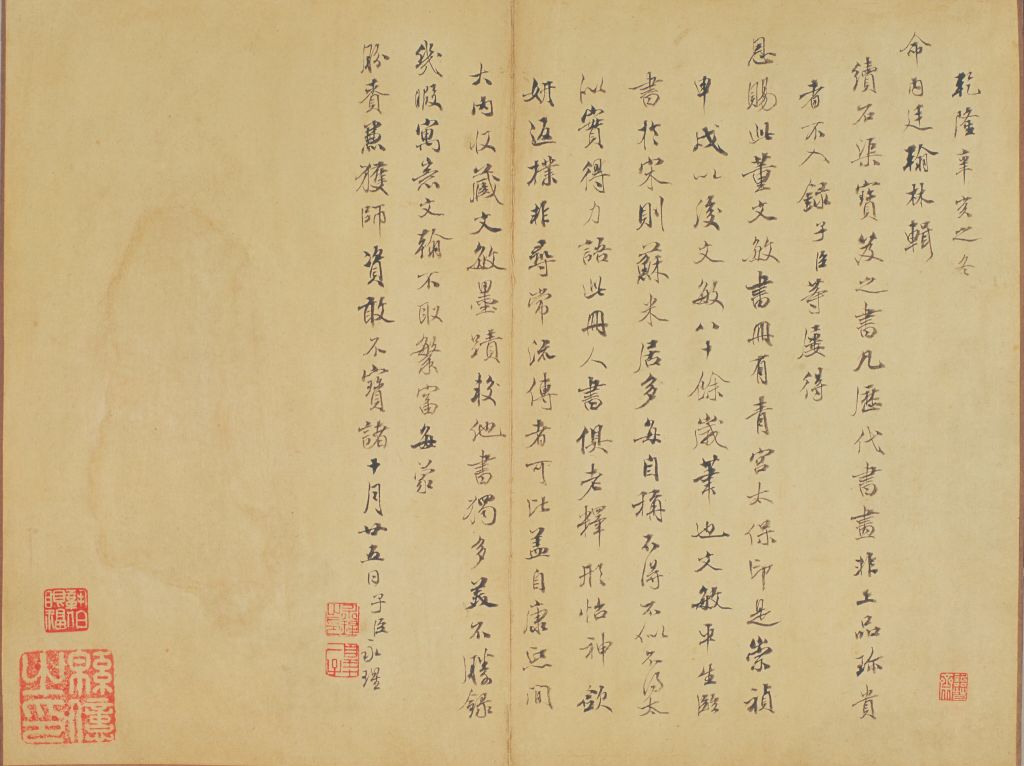 乾隆辛亥之冬
命内廷翰林輯
續石渠寶笈之書凡歷代書畫非上品珎貴
者不入錄子臣等屢得
恩賜此董文敏書冊有青宮太保印是崇禎
甲戌以後文敏八十餘歲筆也文敏平生臨
書於宋則蘇米居多每自稱不得不似不得太
似實得力語此冊人書俱老釋形怡神欲
妍返樸非尋常流傳者可比盖自康熙間
大内收藏文敏墨蹟較他書獨多美不勝錄
幾暇寓意文翰不取繁富每蒙
肦賚蕙獲師資敢不寶諸十月廿五日子臣永瑆